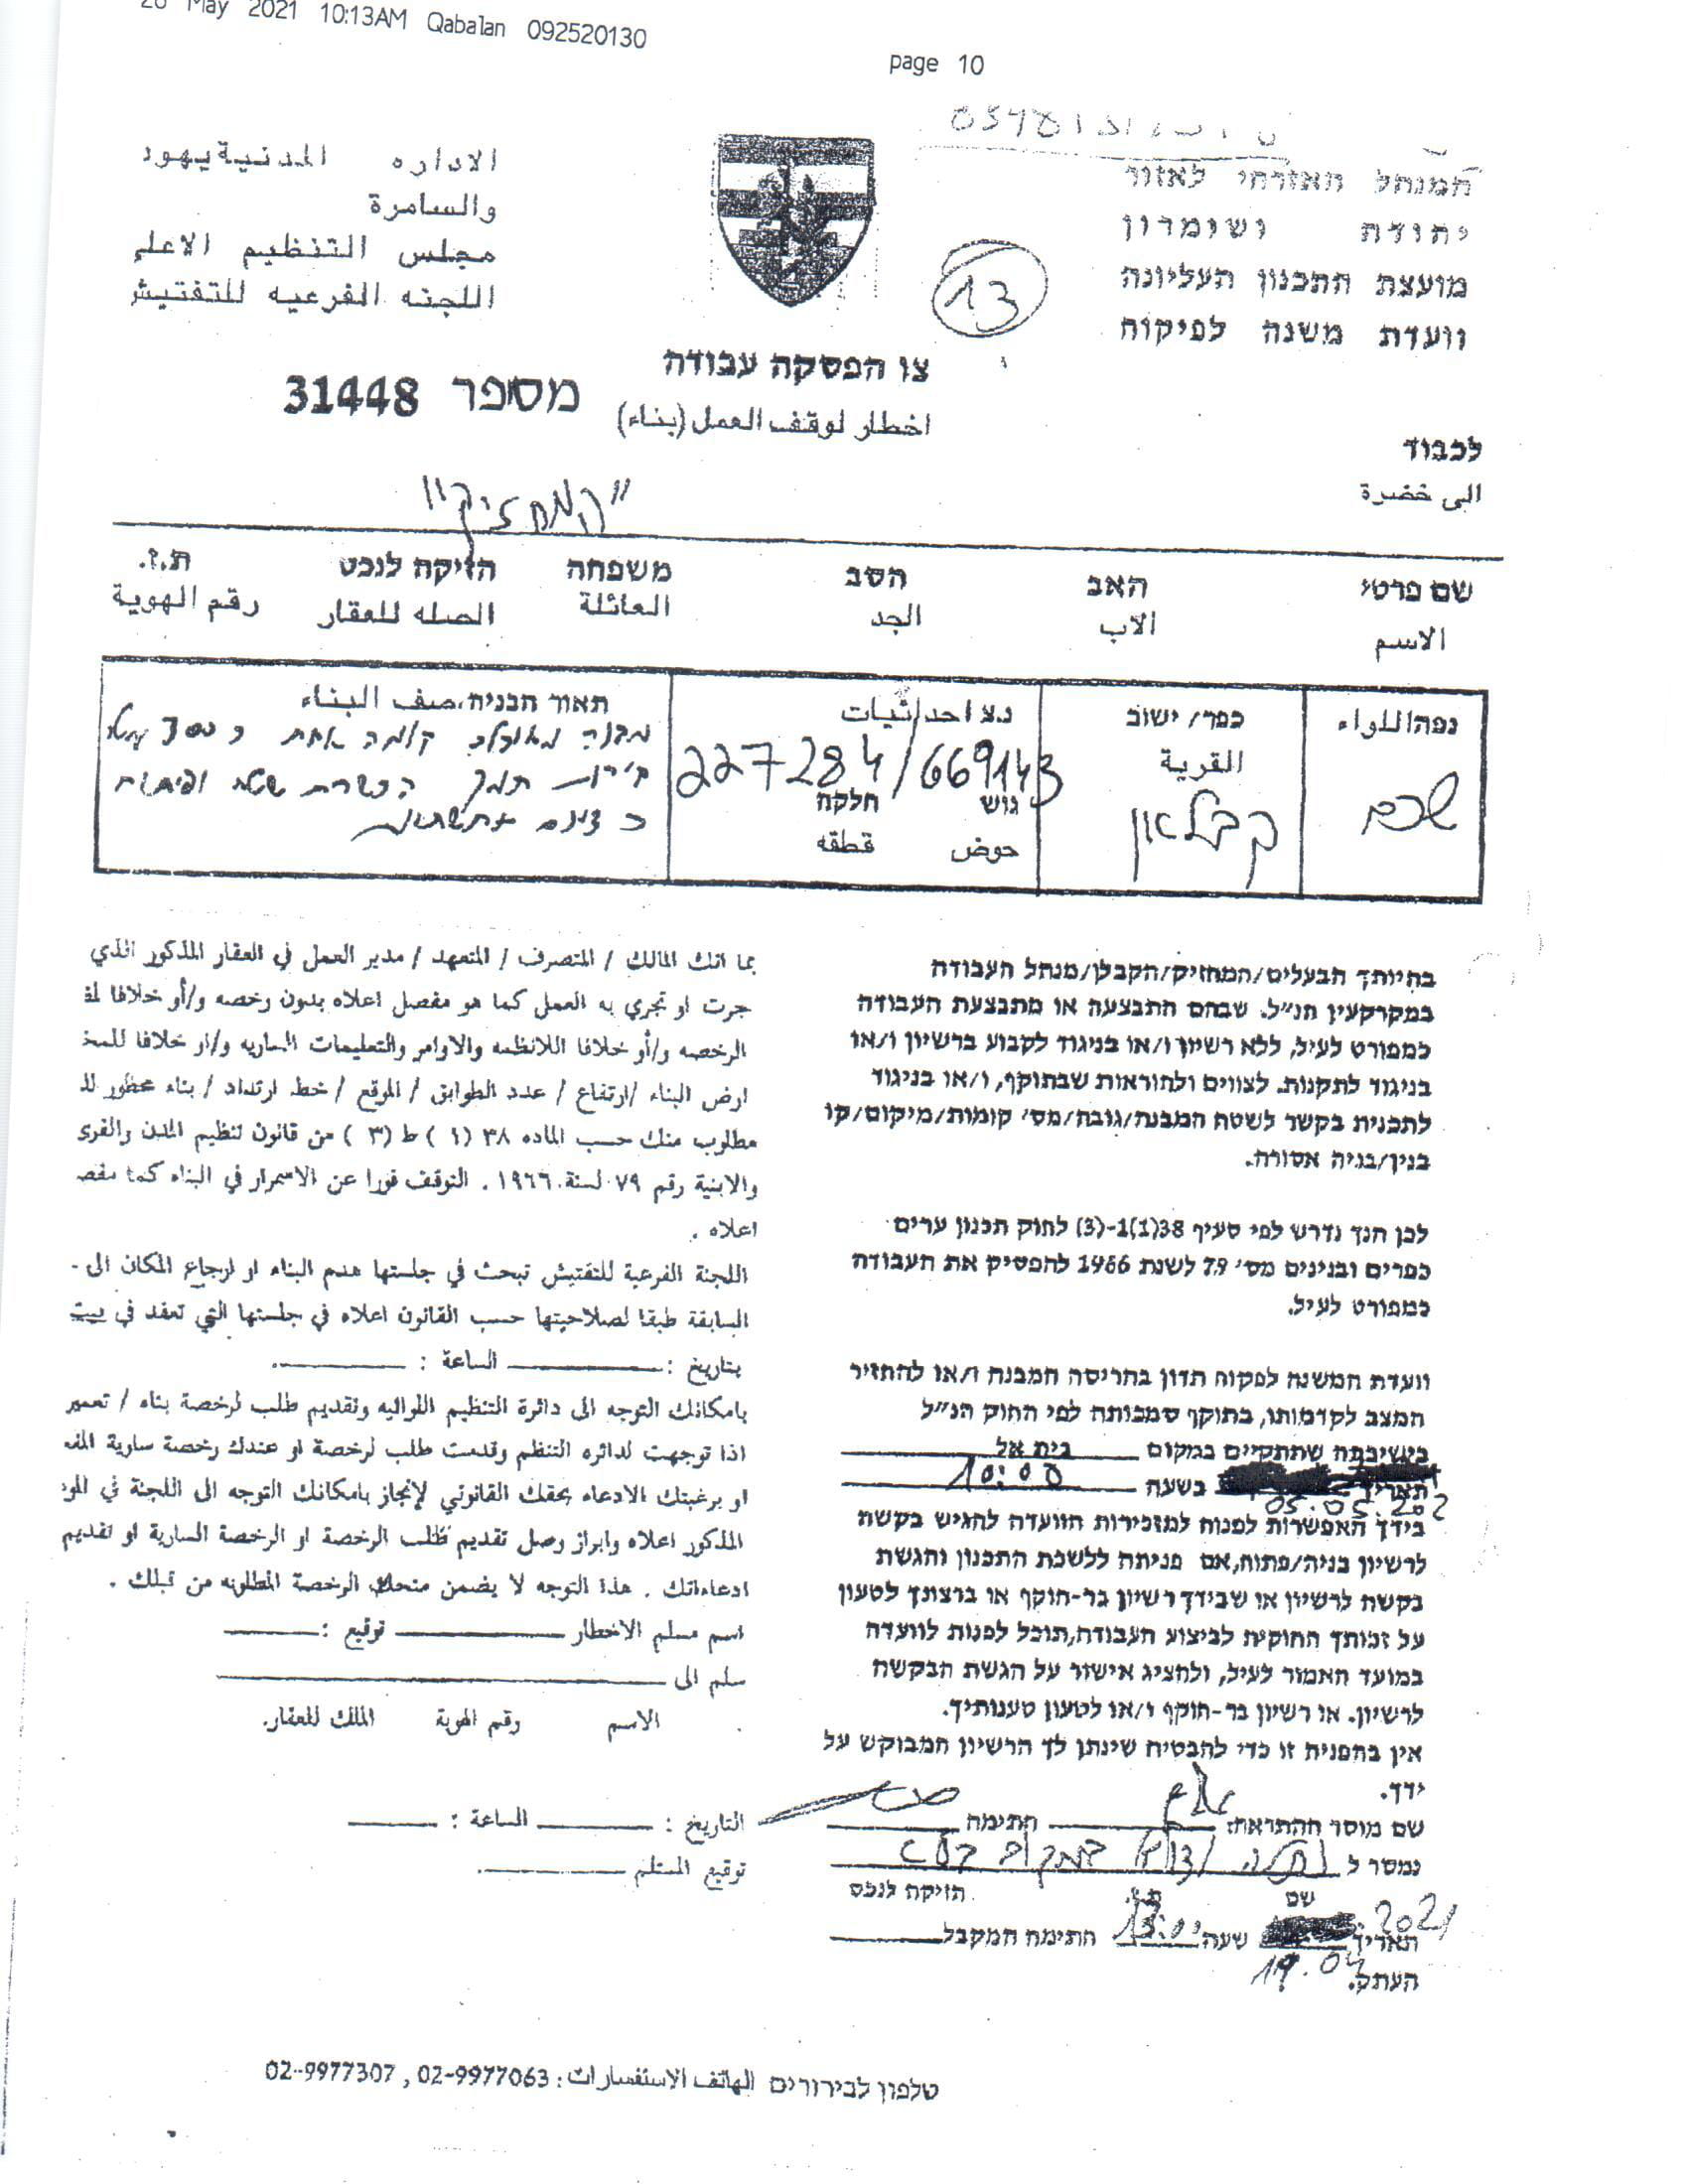 May 2021 10:13AM Qabalan 092520130
page 10
המנהל האזרחי לאזור
יהודה ושומרון
מועצת התכנון העליונה
וועדת משנה לפיקוח
13
الاداره المدنية يهود
والسامرة
مجلس التنظيم الاعلى
اللجنه الفرعيه للتفتيش
צו הפסקה עבודה
מספר 31448
اخطار لوقف العمل (بناء)
לכבוד
الى حضرة
"המחזיק"
שם פרטי האב הסב משפחה הזיקה לנכס ת.ז.
الاسم الاب الجد العائلة الصله للعقار رقم الهوية
נפה اللواء
שכם
כפר/ישוב
القرية
קבלאן
נ.צ احداثيات
227284/669143
גוש חלקה
حوض قطقه
תאור הבניה، صف البناء
קומה אחת כ 300
קירות תמך הכשרת שטח
בהיותך הבעלים/המחזיק/הקבלן/מנהל העבודה
במקרקעין הנ"ל. שבהם התבצעה או מתבצעת העבודה
כמפורט לעיל, ללא רשיון ו/או בניגוד לקבוע ברשיון ו/או
בניגוד לתקנות. לצווים ולהוראות שבתוקף, ו/או בניגוד
לתכנית בקשר לשטח המבנה/גובה/מס' קומות/מיקום/קו
בנין/בניה אסורה.
לכן הנך נדרש לפי סעיף 38(1)1-(3) לחוק תכנון ערים
כפרים ובנינים מס' 79 לשנת 1966 להפסיק את העבודה
כמפורט לעיל.
וועדת המשנה לפקוח תדון בהריסה המבנה ו/או להחזיר
המצב לקדמותו, בתוקף סמכותה לפי החוק הנ"ל
בישיבתה שתתקיים במקום בית אל
תאריך בשעה 10:00
05.05.202
בידך האפשרות לפנות למזכירות הוועדה להגיש בקשה
לרשיון בניה/פתוח,אם פניתה ללשכת התכנון והגשת
בקשה לרשיון או שבידך רשיון בר-תוקף או ברצונך לטעון
על זכותך החוקית לביצוע העבודה,תוכל לפנות לוועדה
במועד האמור לעיל, ולהציג אישור על הגשת הבקשה
לרשיון. או רשיון בר-תוקף ו/או לטעון טענותיך.
אין בהפניה זו כדי להבטיח שינתן לך הרשיון המבוקש על
ידך.
שם מוסר ההתראה: חתימה
נמסר ל
שם ת.ז. הזיקה לנכס
תאריך 2021 שעה 13:00 חתימה המקבל
19.04
העתק.
بما انك المالك / المتصرف / المتعهد / مدير العمل في العقار المذكور الذي
جرت او تجري به العمل كما هو مفصل اعلاه بدون رخصه و/أو خلافا لم
الرخصه و/أو خلافا اللانظمه والاوامر والتعليمات الساريه و/أو خلافا للمخ
ارض البناء /ارتفاع / عدد الطوابق / الموقع / خط ارتداد / بناء محظور لذ
مطلوب منك حسب الماده ٣٨ (١) ط (٣) من قانون تنظيم المدن والقرى
والابنية رقم ٧٩ لسنة ١٩٦٦ . التوقف فورا عن الاسمرار في البناء كما مفص
اعلاه .
اللجنة الفرعية للتفتيش تبحث في جلستها هدم البناء او ارجاع المكان الى -
السابقة طبقا لصلاحيتها حسب القانون اعلاه في جلستها التي تعقد في بيت
بتاريخ : الساعة :
بامكانك التوجه الى دائرة التنظيم اللوائيه وتقديم طلب لرخصة بناء / تعمير
اذا توجهت لدائره التنظم وقدمت طلب لرخصة او عندك رخصة سارية المفع
او برغبتك الادعاء بحقك القانوني لإنجاز بامكانك التوجه الى اللجنة في المو
المذكور اعلاه وابراز وصل تقديم طلب الرخصة او الرخصة السارية او تقديم
ادعاءاتك . هذا التوجه لا يضمن منحك الرخصة المطلوبه من قبلك .
اسم مسلم الاخطار توقيع :
سلم الى
الاسم رقم الهوية الملك للعقار.
التاريخ : الساعة :
توقيع المستلم
טלפון לבירורים الهاتف الاستفسارات : 02-9977063 , 02-9977307